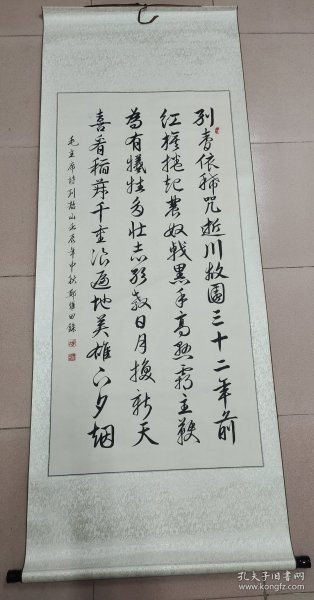 别梦依稀咒逝川故園三十二年前
红旗捲起農奴戟黑手高懸霸主鞭
為有犧牲多壮志敢教日月換新天
喜看稻菽千重浪遍地英雄下夕烟
毛主席詩到韶山 辰年中秋鄭 田錄
孔夫子旧书网
www.kongfz.com